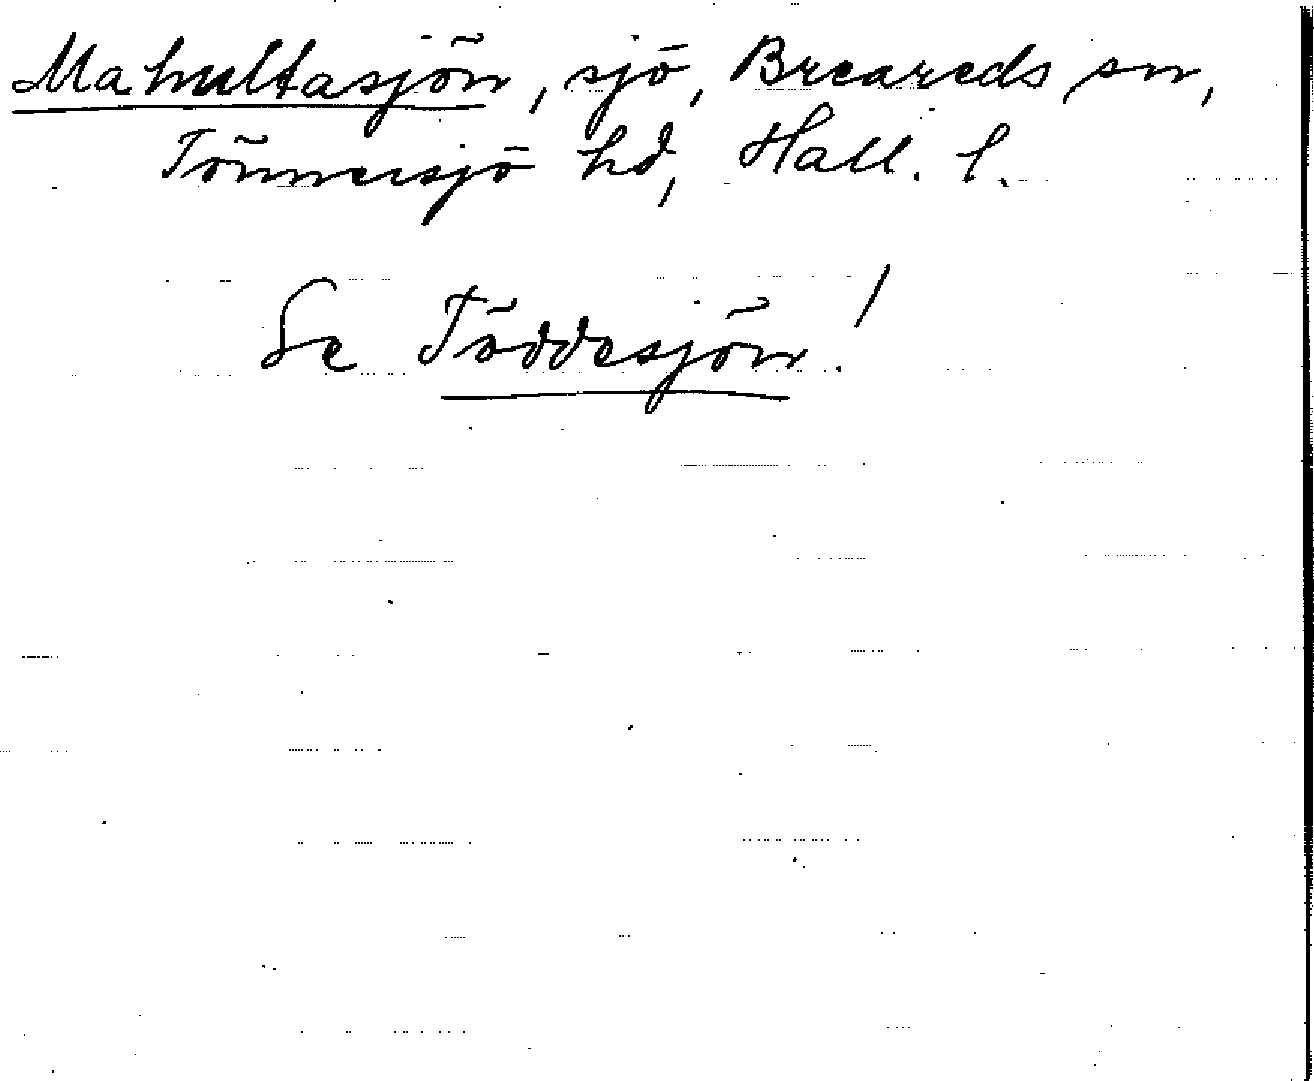 Mahultasjön, sjö, Breareds sn,
Tönnersjö hd, Hall. l.
Se Töddesjön!